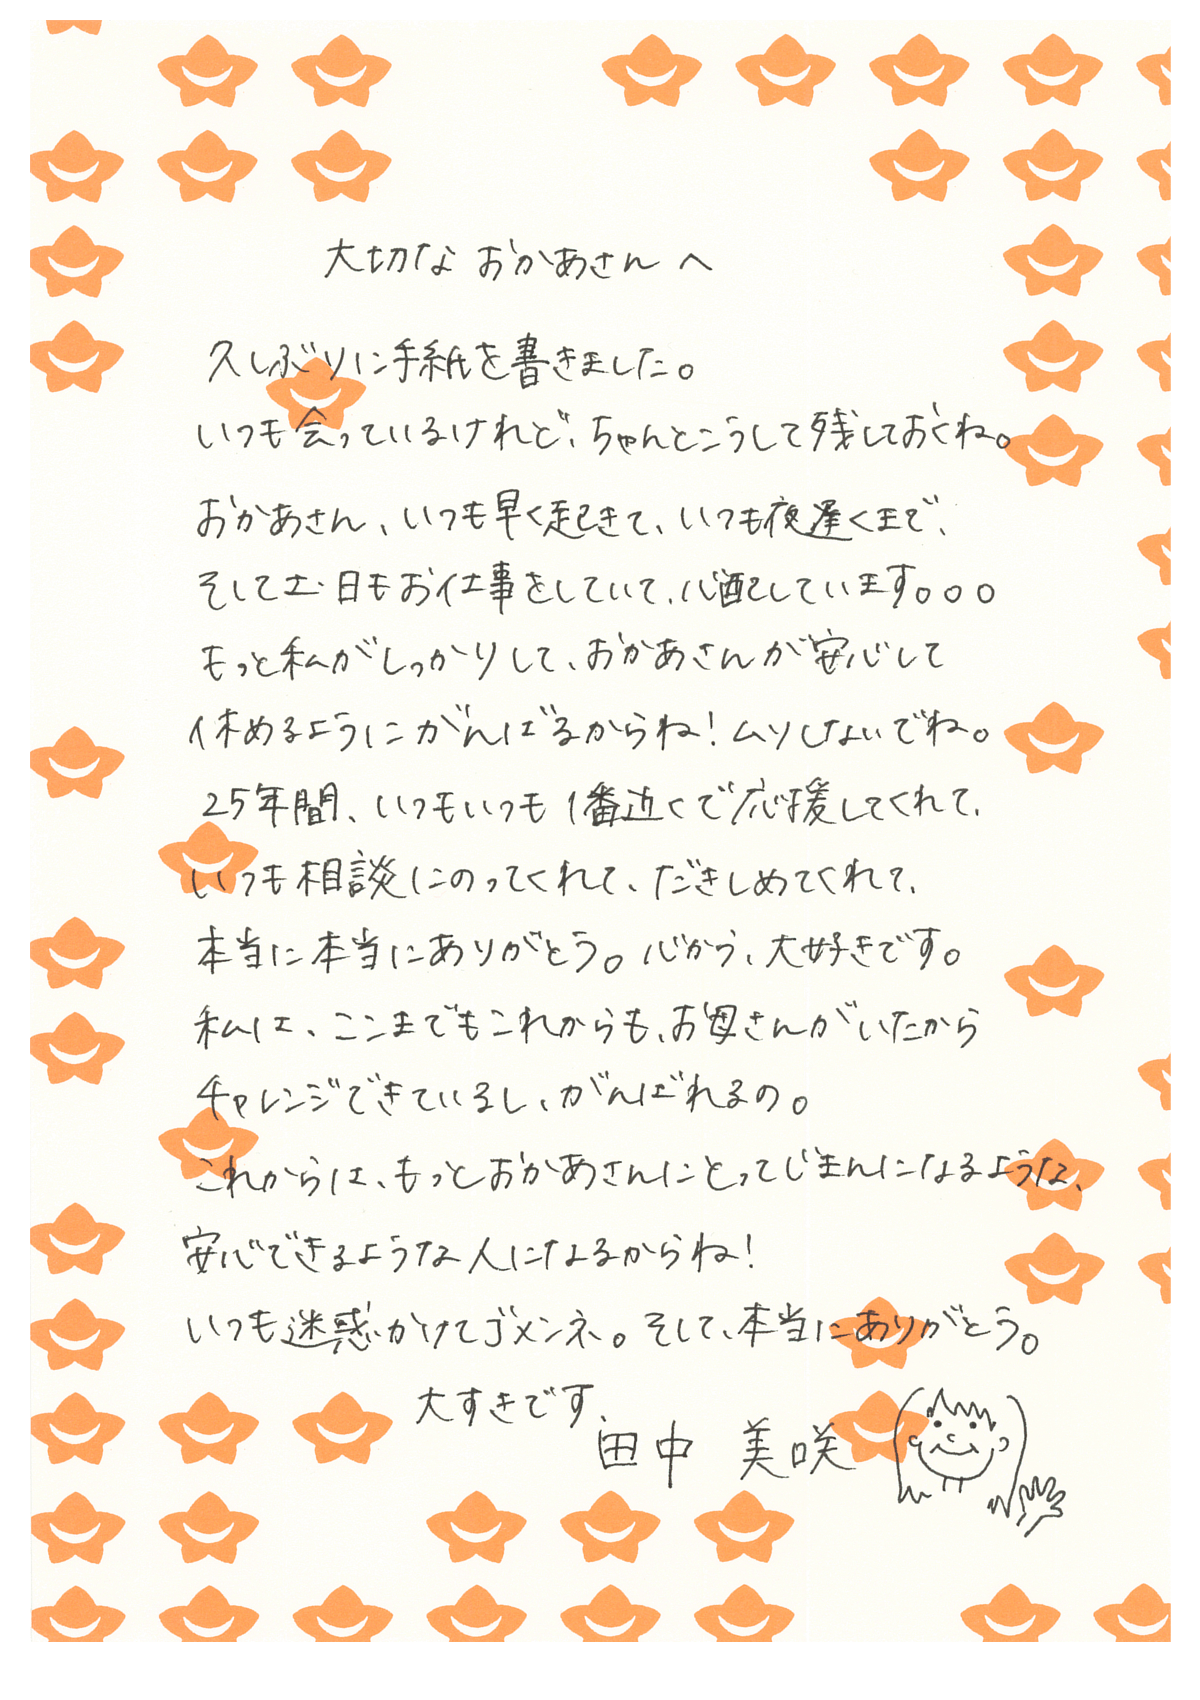 大切な おかあさん へ
久しぶりに手紙を書きました。
いつも会っているけれど、ちゃんとこうして残しておくね。
おかあさん、いつも早く起きて、いつも夜遅くまで、
そして土・日もお仕事をしていて、心配しています。。。
もっと私がしっかりして、おかあさんが安心して
休めるようにがんばるからね！ムリしないでね。
25年間、いつもいつも1番近くで応援してくれて、
いつも相談にのってくれて、だきしめてくれて、
本当に本当にありがとう。心から、大好きです。
私は、ここまでもこれからも、お母さんがいたから
チャレンジできているし、がんばれるの。
これからは、もっとおかあさんにとってじまんになるような、
安心できるような人になるからね！
いつも迷惑かけてゴメンネ。そして、本当にありがとう。
大すきです、
田中 美咲